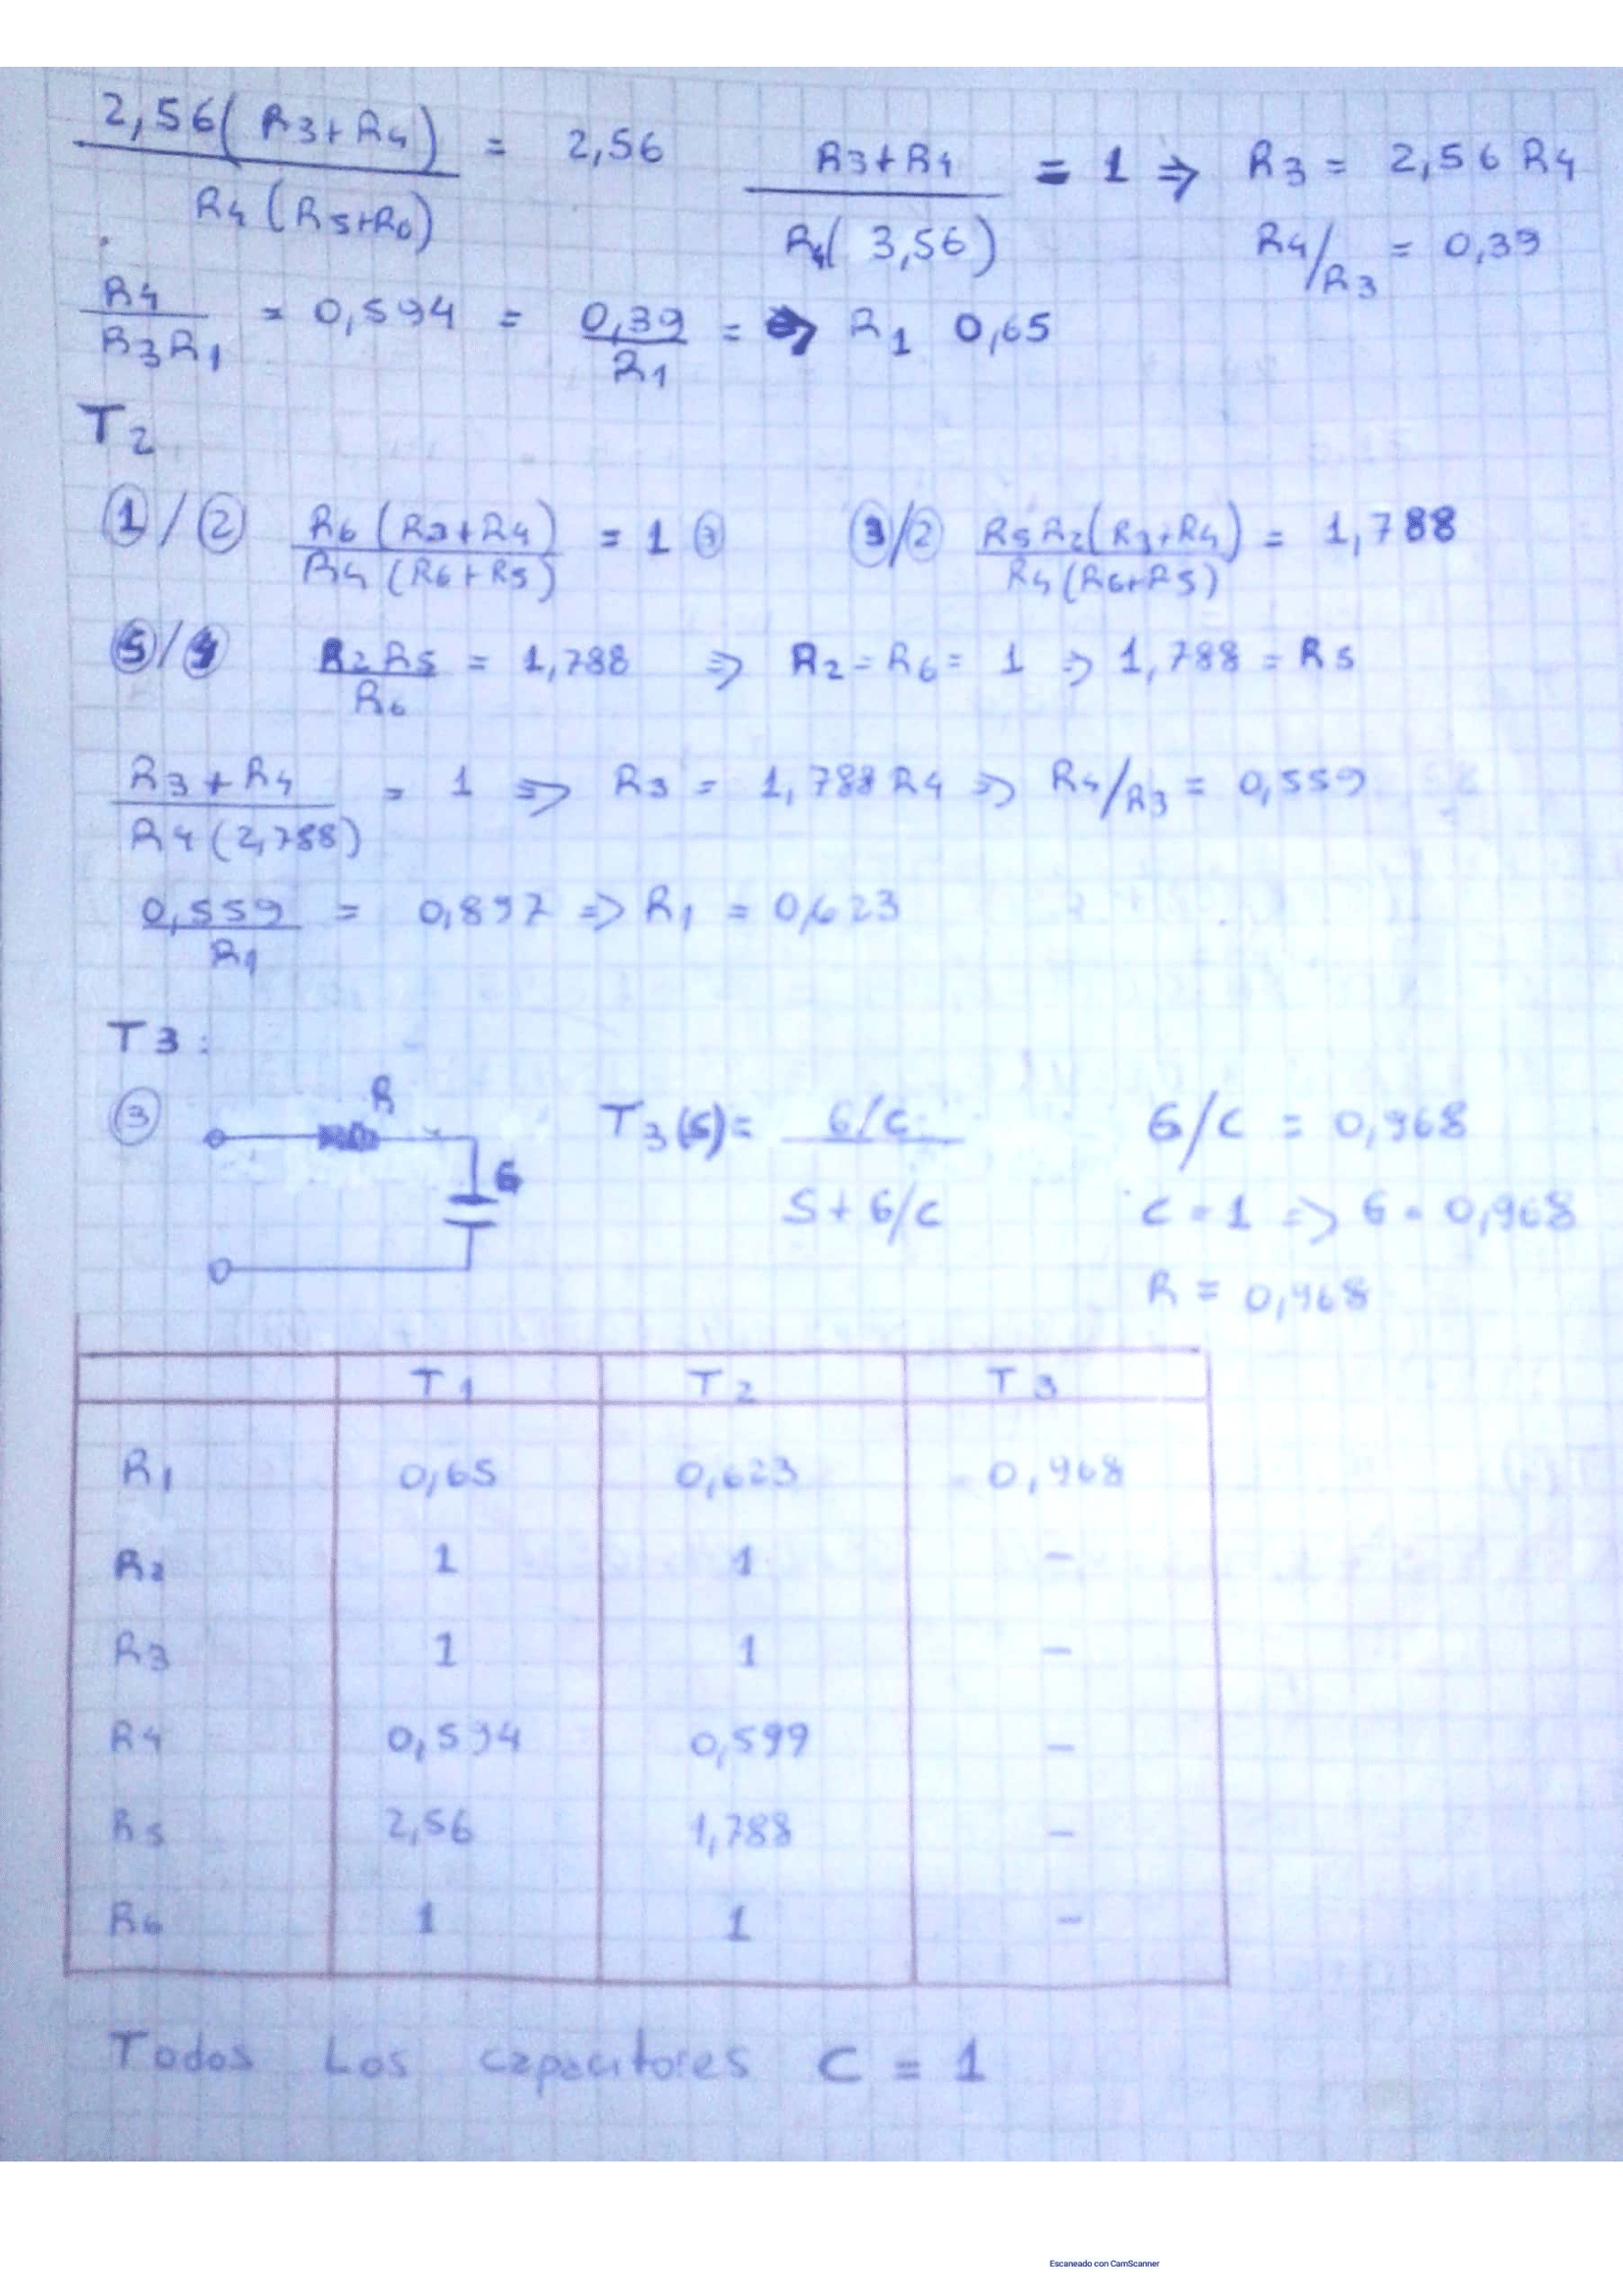 2,56(R3+R4) / R4(R5+R6) = 2,56    R3+R4 / R4(3,56) = 1 ⇒ R3 = 2,56 R4
R4/R3 = 0,39
R4 / R3R1 = 0,594 = 0,39 / R1 = ⇒ R1 0,65
T2
①/② R6(R3+R4) / R4(R6+R5) = 1    ③/② R5R2(R3+R4) / R4(R6+R5) = 1,788
R2R5 / R6 = 1,788 ⇒ R2 = R6 = 1 ⇒ 1,788 = R5
R3+R4 / R4(2,788) = 1 ⇒ R3 = 1,788 R4 ⇒ R4/R3 = 0,559
0,559 / R1 = 0,897 ⇒ R1 = 0,623
T3:
③ R    T3(s) = G/C / S+G/C    G/C = 0,968
C = 1 ⇒ G = 0,968
R = 0,968
T1 T2 T3
R1 0,65 0,623 0,968
R2 1 1 -
R3 1 1 -
R4 0,594 0,599 -
R5 2,56 1,788 -
R6 1 1 -
Todos Los capacitores C = 1
Escaneado con CamScanner